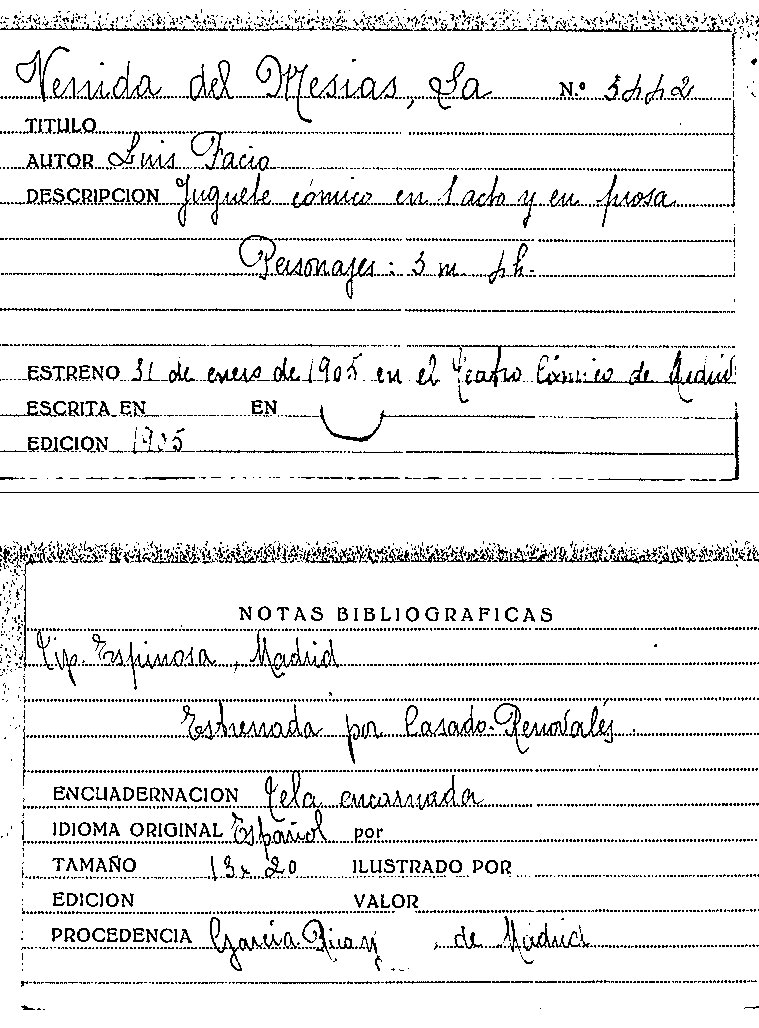 Venida del Mesias, La N.º
TITULO
AUTOR Luis Facio
DESCRIPCION Juguete cómico en 1 acto y en prosa
Personajes: 3 m.
ESTRENO 31 de enero de 1905 en el Teatro Cómico de Madrid
ESCRITA EN EN
EDICION 1905
NOTAS BIBLIOGRAFICAS
Tip. Espinosa, Madrid
Estrenada por Casado-Renovalés.
ENCUADERNACION Tela encarnada
IDIOMA ORIGINAL Español por
TAMAÑO 13 x 20 ILUSTRADO POR
EDICION VALOR
PROCEDENCIA García Rico y , de Madrid